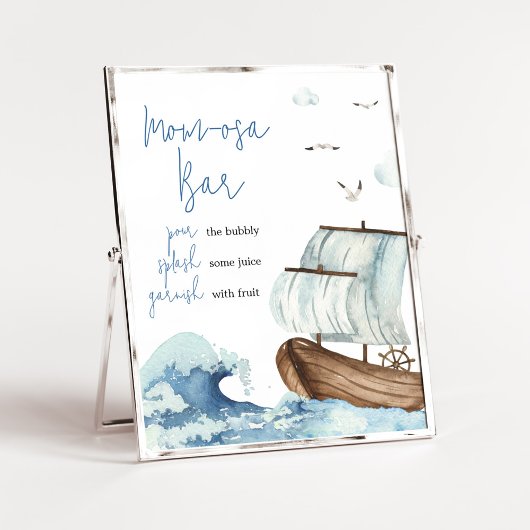 Mom-osa
Bar
pour the bubbly
splash some juice
garnish with fruit